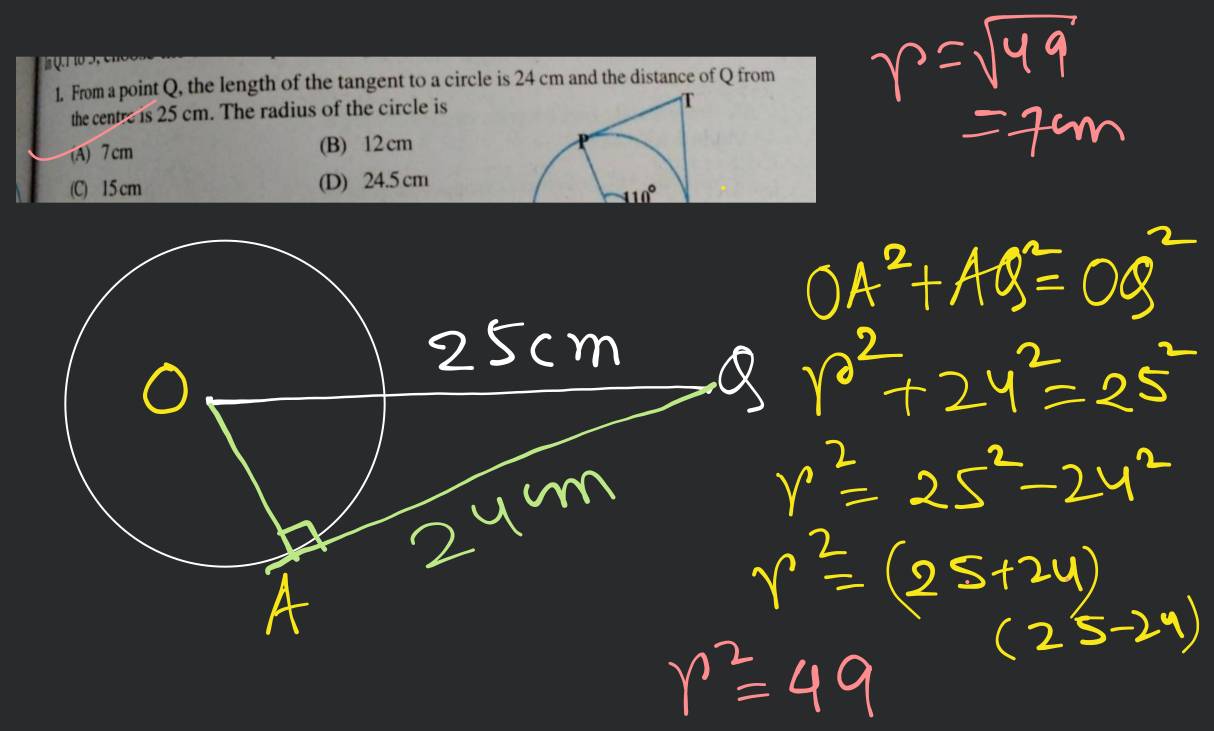 1. From a point Q, the length of the tangent to a circle is 24 cm and the distance of Q from
the centre is 25 cm. The radius of the circle is
(A) 7 cm
(B) 12 cm
(C) 15 cm
(D) 24.5 cm
T
P
110°
r = √49
= 7cm
O
25cm
Q
24cm
A
OA² + AQ² = OQ²
r² + 24² = 25²
r² = 25² - 24²
r² = (25+24)
(25-24)
r² = 49